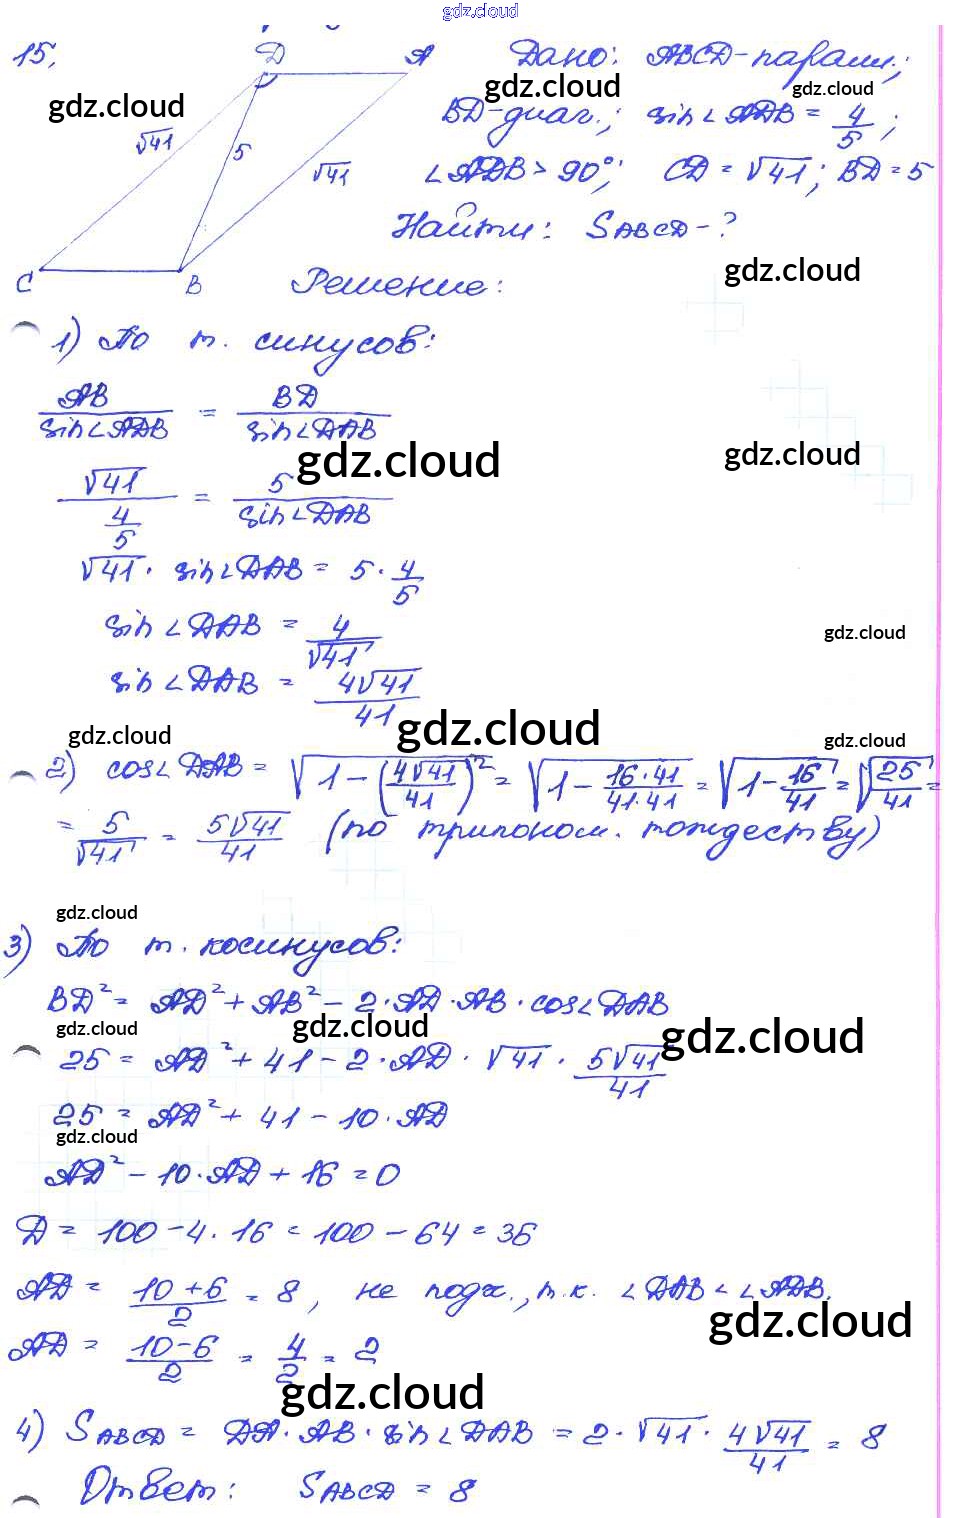 gdz.cloud
15. D A Дано: ABCD-парал.;
gdz.cloud gdz.cloud gdz.cloud
√41 5 √41 BD-диаг.; sin∠ADB = 4/5;
∠ADB > 90°; CD = √41; BD = 5
Найти: SABCD-?
C B Решение:
gdz.cloud
1) По т. синусов:
AB/sin∠ADB = BD/sin∠DAB
gdz.cloud gdz.cloud
√41/(4/5) = 5/sin∠DAB
√41 · sin∠DAB = 5 · 4/5
sin∠DAB = 4/√41
gdz.cloud
sin∠DAB = 4√41/41
gdz.cloud gdz.cloud gdz.cloud
2) cos∠DAB = √(1-(4√41/41)²) = √(1-16·41/41·41) = √(1-16/41) = √(25/41) =
= 5/√41 = 5√41/41 (по тригоном. тождеству)
gdz.cloud
3) По т. косинусов:
BD² = AD² + AB² - 2·AD·AB·cos∠DAB
gdz.cloud gdz.cloud gdz.cloud
25 = AD² + 41 - 2·AD·√41·5√41/41
25 = AD² + 41 - 10·AD
gdz.cloud
AD² - 10·AD + 16 = 0
D = 100 - 4·16 = 100 - 64 = 36
AD = (10+6)/2 = 8, не подх., т.к. ∠DAB < ∠ADB.
gdz.cloud
AD = (10-6)/2 = 4/2 = 2
gdz.cloud
4) SABCD = DA·AB·sin∠DAB = 2·√41·4√41/41 = 8
Ответ: SABCD = 8